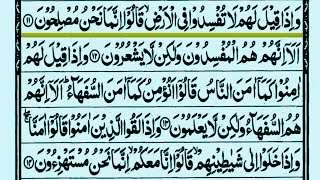 وَاِذَا قِيْلَ لَهُمْ لَا تُفْسِدُوْا فِى الْاَرْضِ قَالُوْۤا اِنَّمَا نَحْنُ مُصْلِحُوْنَ ﴿۱۱﴾
اَلَاۤ اِنَّهُمْ هُمُ الْمُفْسِدُوْنَ وَلٰكِنْ لَّا يَشْعُرُوْنَ ﴿۱۲﴾ وَاِذَا قِيْلَ لَهُمْ
اٰمِنُوْا كَمَاۤ اٰمَنَ النَّاسُ قَالُوْۤا اَنُؤْمِنُ كَمَاۤ اٰمَنَ السُّفَهَآءُ ؕ اَلَاۤ اِنَّهُمْ
هُمُ السُّفَهَآءُ وَلٰكِنْ لَّا يَعْلَمُوْنَ ﴿۱۳﴾ وَاِذَا لَقُوا الَّذِيْنَ اٰمَنُوْا قَالُوْۤا اٰمَنَّا ۖۚ
وَاِذَا خَلَوْا اِلٰى شَيٰطِيْنِهِمْ ۙ قَالُوْۤا اِنَّا مَعَكُمْ ۙ اِنَّمَا نَحْنُ مُسْتَهْزِءُوْنَ ﴿۱۴﴾